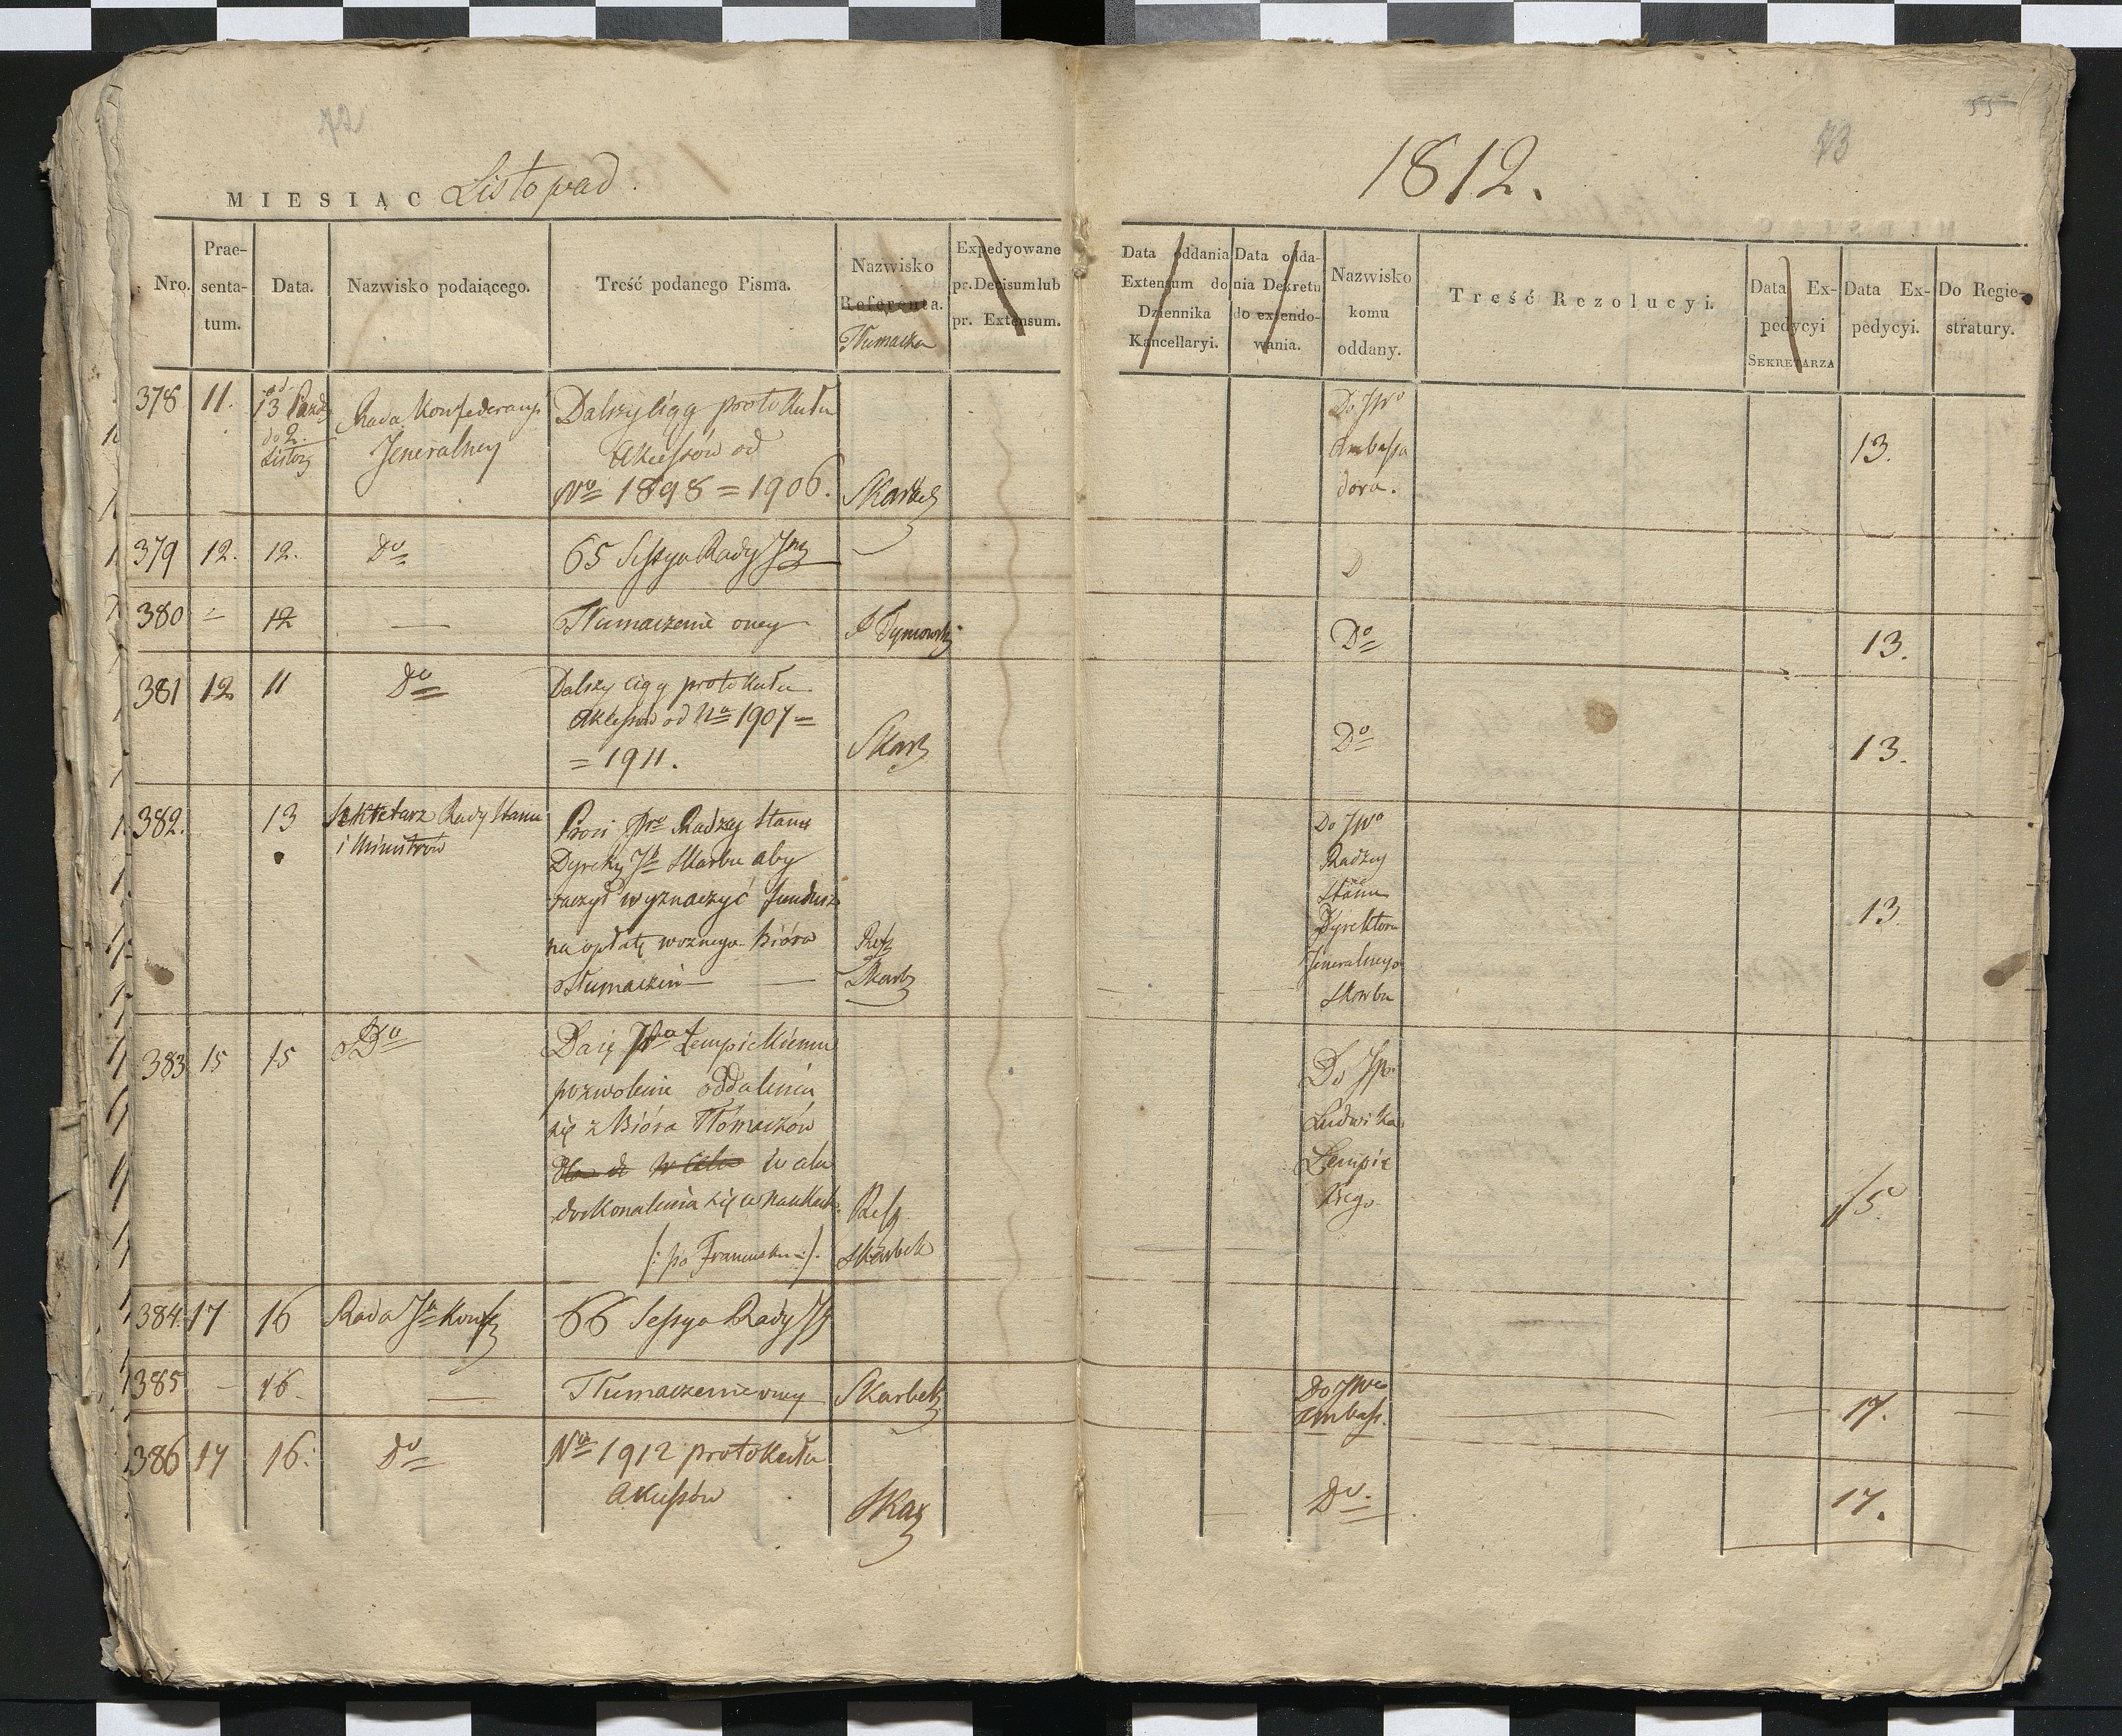 72
MIESIĄC Listopad.
Nro.
Prae-
senta-
tum.
Data.
Nazwisko podaiącego.
Treść podanego Pisma.
Nazwisko
Referenta.
Tłumacza
Expedyowane
pr. Decisum lub
pr. Extensum.
378 11.
od
13 Paźdz
do 2.
Listop
Rada Konfederacyi
Jeneralney
Dalszy ciąg protokułu
akcessów od
No 1898 = 1906.
Skarbek
379 12. 12. Do 65 Sessya Rady Jney
380 = 12 — Tłumaczenie oney J Tymowski
381 12 11 Do Dalszy ciąg protokułu
akcessów od No 1907 =
= 1911.
Skarb
382. 13 Sekretarz Rady Stanu
i Ministrów
Prosi JWo Radzcy Stanu
Dyrekt Jo Skarbu aby
raczył wyznaczyć fundusz
na opłatę woznego Bióra
Tłumaczeń —
Resp
Skarb
383 15 15 Do
Daię JWo Lempickiemu
pozwolenie oddalenia
się z Bióra Tłómaczów
w celu w celu
doskonalenia się w naukach
(: po Francusku :).
Resp
Skarbek
384. 17 16 Rada Jla Konf 66 Sessya Rady Jy
385 — 16. — Tłumaczenie oney Skarbek
386 17 16. Do No 1912 protokułu
akcessów
Skar
55
73
1812.
Data oddania
Extensum do
Dziennika
Kancellaryi.
Data odda-
nia Dekretu
do extendo-
wania.
Nazwisko
komu
oddany.
Treść Rezolucyi.
Data Ex-
pedycyi
SEKRETARZA
Data Ex-
pedycyi.
Do Regie-
stratury.
Do JWo
Ambassa
dora.
13.
D
Do 13.
Do 13.
Do JWo
Radzcy
Stanu
Dyrektora
Jeneralnego
Skarbu
13
Do JP.
Ludwika
Lempic
kiego
15.
Do JWo
Ambass.
17.
Do. 17.